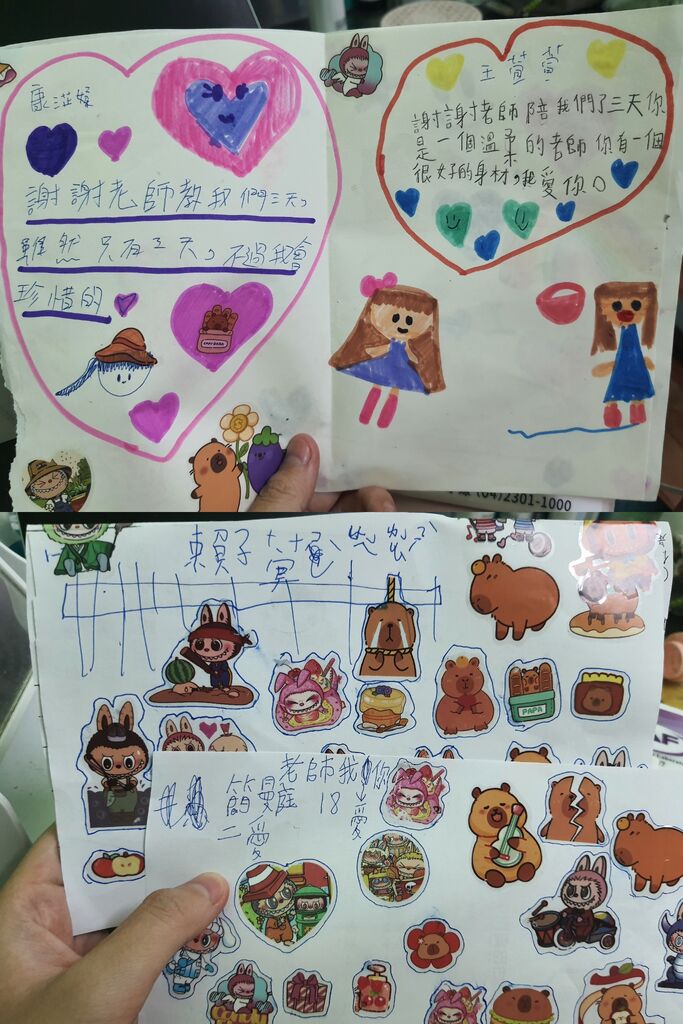 謝謝老師教我們三天。
雖然只有三天。不過我會
珍惜的
王萱萱
謝謝老師陪我們了三天你
是一個溫柔的老師你有一個
很好的身材,我愛你。
(04)2301-1000
賴子
PAPA
老師我 你
18 愛
二愛